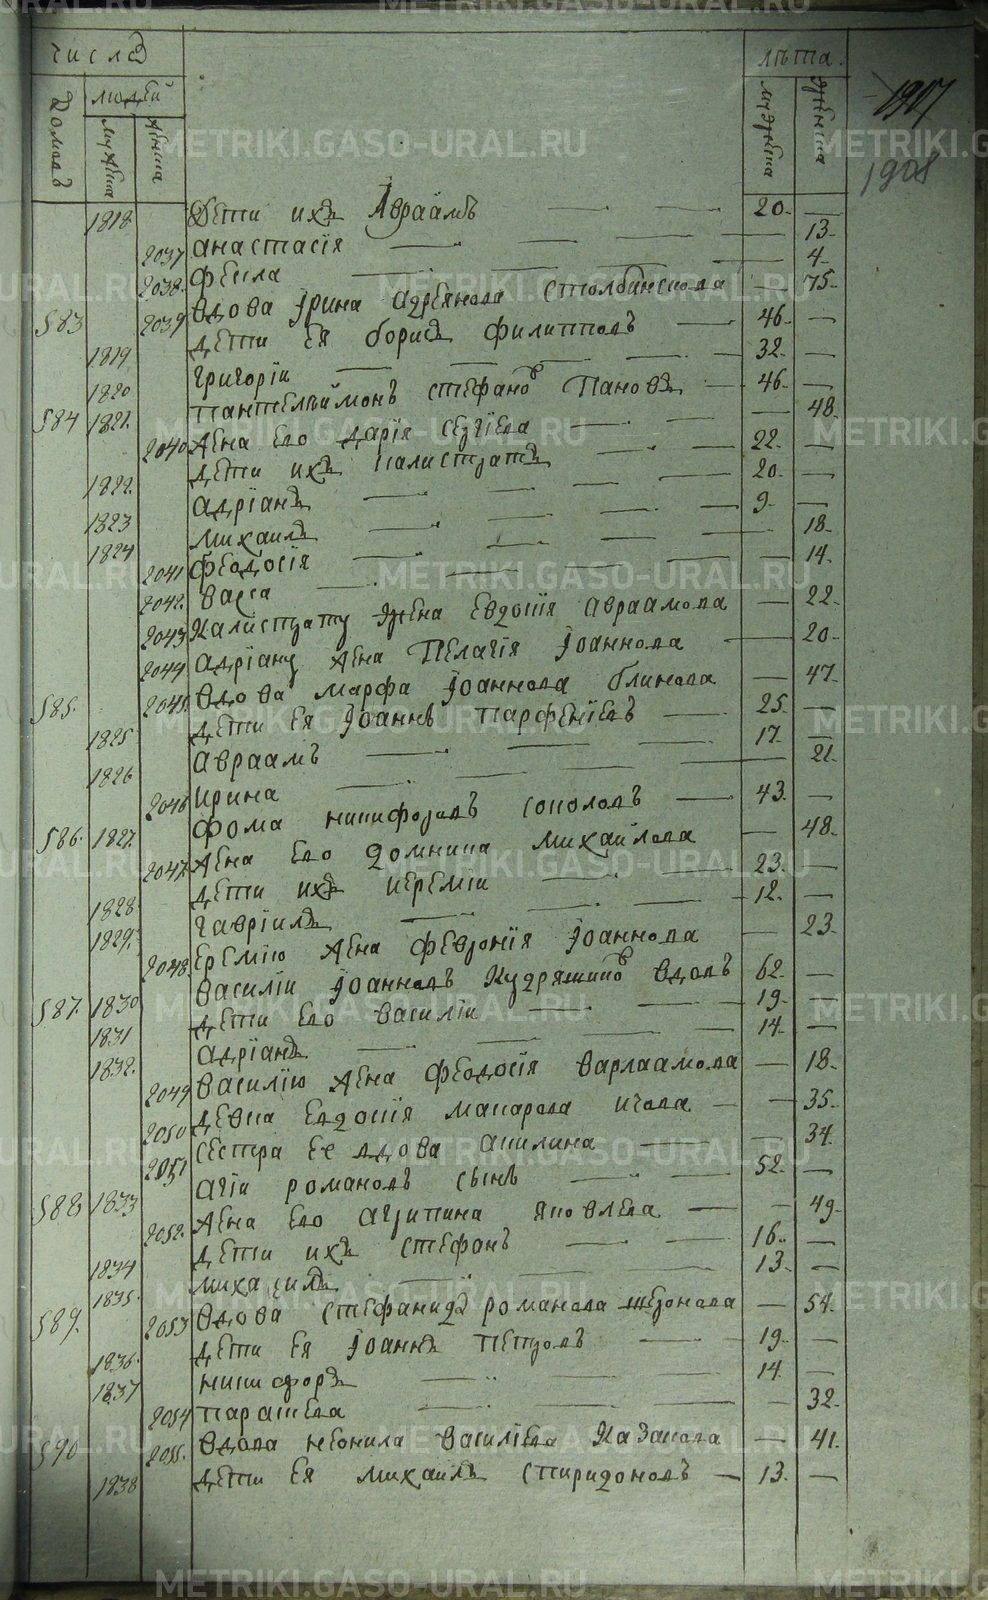 числа
лѣта.
Домовъ
людей
мужеска
женска
мужеска
женска
1907
1908
1818 Дѣти ихъ Авраамъ 20.
2037 Анастасія 13.
2038. Фекла 4.
583 2039 Вдова Ірина Адрѣянова Столбинскова 75.
1819. Дѣти Ея Борисъ Филипповъ 46.
1820 Григорій 32.
584 1821. Пантелѣймонъ Стефановъ Пановъ 46.
2040 Жена Его Дарія Сергіева 48.
1822. Дѣти ихъ Калистратъ 22.
1823 Адріанъ 20.
1824 Михаилъ 9.
2041 Феодосія 18.
2042. Васса 14.
2043 Калистрату жена Евдокія Авраамова 22.
2044 Адріану жена Пелагія Іоаннова 20.
585. 2045. Вдова Марфа Іоаннова Блинова 47.
1825 Дѣти Ея Іоаннъ Парфеніевъ 25.
1826 Авраамъ 17.
2046 Ирина 21.
586. 1827. Фома Никифоровъ Соколовъ 43.
2047. Жена Его Домника Михайлова 48.
1828. Дѣти ихъ Иеремій 23.
1829. Гавріилъ 12.
2048 Еремію жена Февронія Іоаннова 23.
587. 1830 Василій Іоанновъ Кудряшинъ вдовъ 62.
1831 Дѣти Его Василій 19.
1832. Адріанъ 14.
2049 Василію жена Феодосія Варлаамова 18.
2050 Девка Евдокія Макарова 35.
2051 Сестра Ее вдова Акилина 34.
588 1833 Агій Романовъ 52.
2052. Жена Его Агрипина Яковлева 49.
1834 Дѣти ихъ Стефанъ 16.
1835. Михаилъ 13.
589. 2053 Вдова Стефанида Романова 54.
1836. Дѣти Ея Іоаннъ Петровъ 19.
1837 Никифоръ 14.
2054 Парасева 32.
590 2055. Вдова Неонила Василіева Казакова 41.
1838 Дѣти Ея Михаилъ Спиридоновъ 13.
METRIKI.GASO-URAL.RU